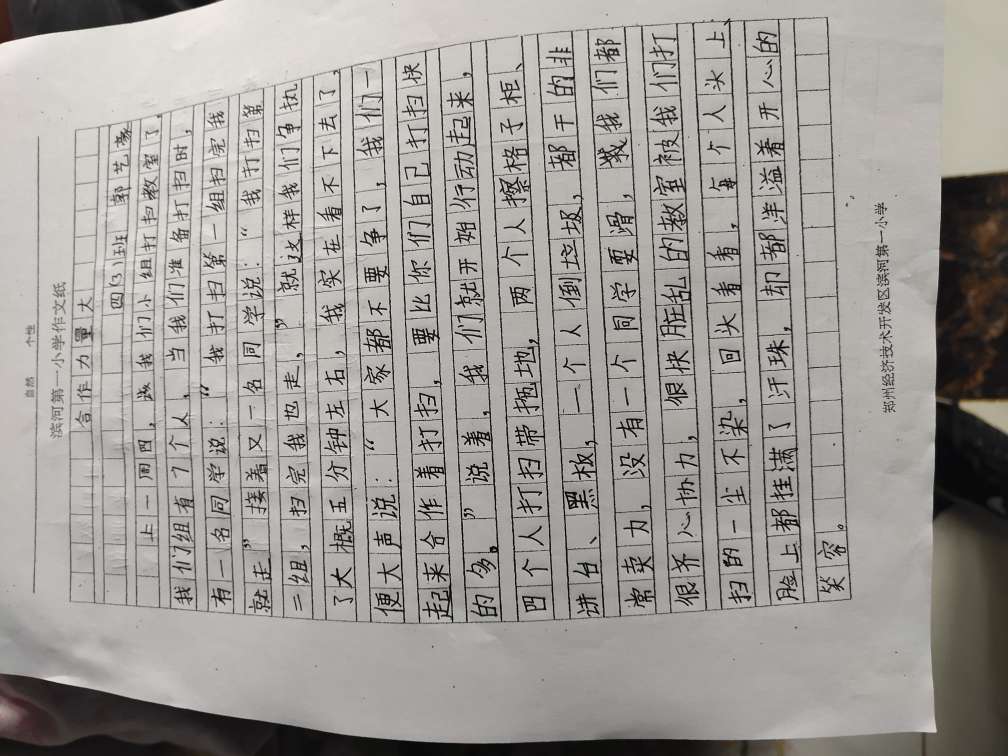 自然 个性
滨河第一小学作文纸
合作力量大
四(3)班 郭艺豪
上一周四，该我们小组打扫教室了，
我们组有7个人，当我们准备打扫时，
有一名同学说：“我打扫第一组扫完我
就走”接着又一名同学说：“我打扫第
二组，扫完我也走，”就这样我们争执
了大概五分钟左右，我实在看不下去了，
便大声说：“大家都不要争了，我们一
起来合作着打扫，要比你们自己打扫快
的多。”说着，我们就开始行动起来，
四个人打扫带拖地，两个人擦格子柜、
讲台、黑板，一个人倒垃圾，都干的非
常卖力，没有一个同学耍滑，我们都
很齐心协力，很快脏乱的教室被我们打
扫的一尘不染，回头看看，每个人头上、
脸上都挂满了汗珠，却都洋溢着开心的
笑容。
郑州经济技术开发区滨河第一小学